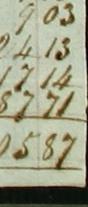 9 03
2 4 13
1 7 14
8 7 71
0 5 87